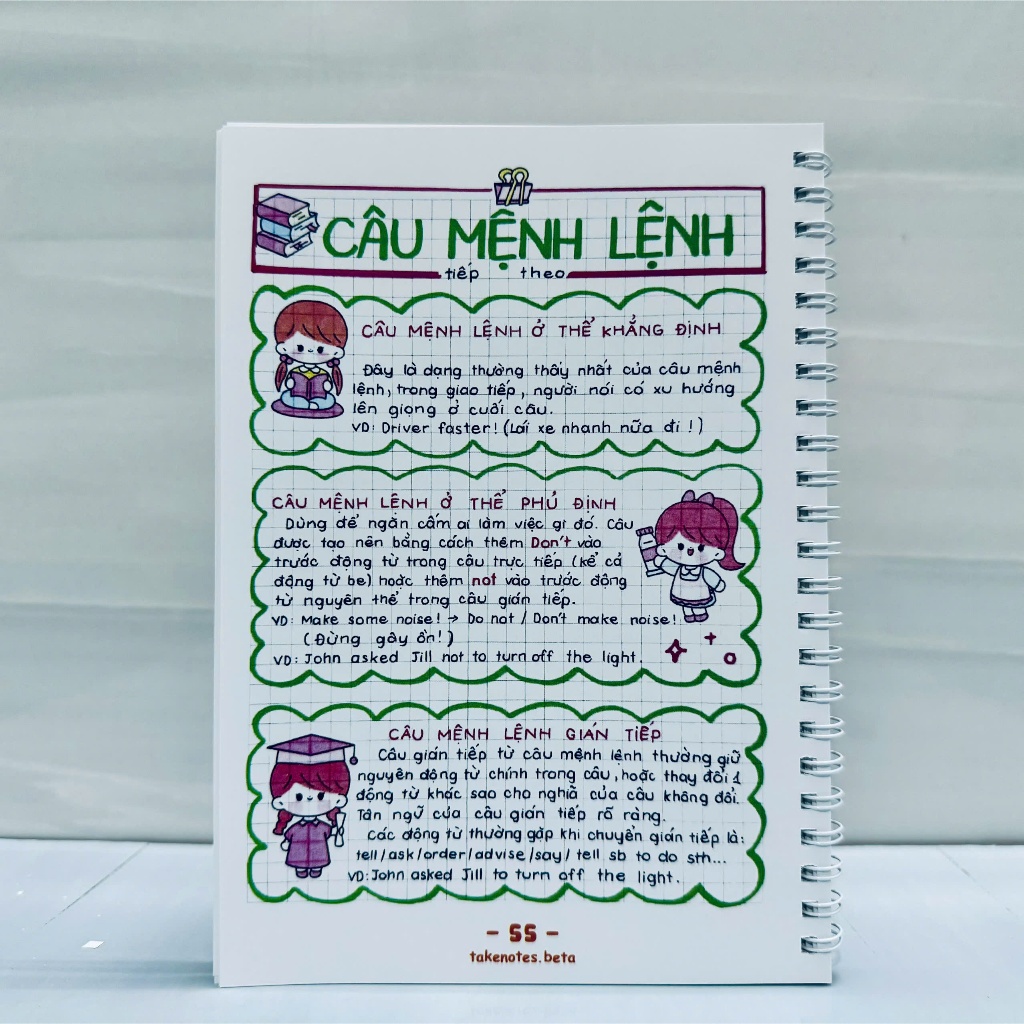 CÂU MỆNH LỆNH
tiếp theo
CÂU MỆNH LỆNH Ở THỂ KHẲNG ĐỊNH
Đây là dạng thường thấy nhất của câu mệnh
lệnh, trong giao tiếp, người nói có xu hướng
lên giọng ở cuối câu.
VD: Driver faster! (Lái xe nhanh nữa đi!)
CÂU MỆNH LỆNH Ở THỂ PHỦ ĐỊNH
Dùng để ngăn cấm ai làm việc gì đó. Câu
được tạo nên bằng cách thêm Don't vào
trước động từ trong câu trực tiếp (kể cả
động từ be) hoặc thêm not vào trước động
từ nguyên thể trong câu gián tiếp.
VD: Make some noise! → Do not / Don't make noise!
(Đừng gây ồn!)
VD: John asked Jill not to turn off the light.
CÂU MỆNH LỆNH GIÁN TIẾP
Câu gián tiếp từ câu mệnh lệnh thường giữ
nguyên động từ chính trong câu, hoặc thay đổi 1
động từ khác sao cho nghĩa của câu không đổi.
Tân ngữ của câu gián tiếp rõ ràng.
Các động từ thường gặp khi chuyển gián tiếp là:
tell/ask/order/advise/say/ tell sb to do sth...
VD: John asked Jill to turn off the light.
- 55 -
takenotes.beta